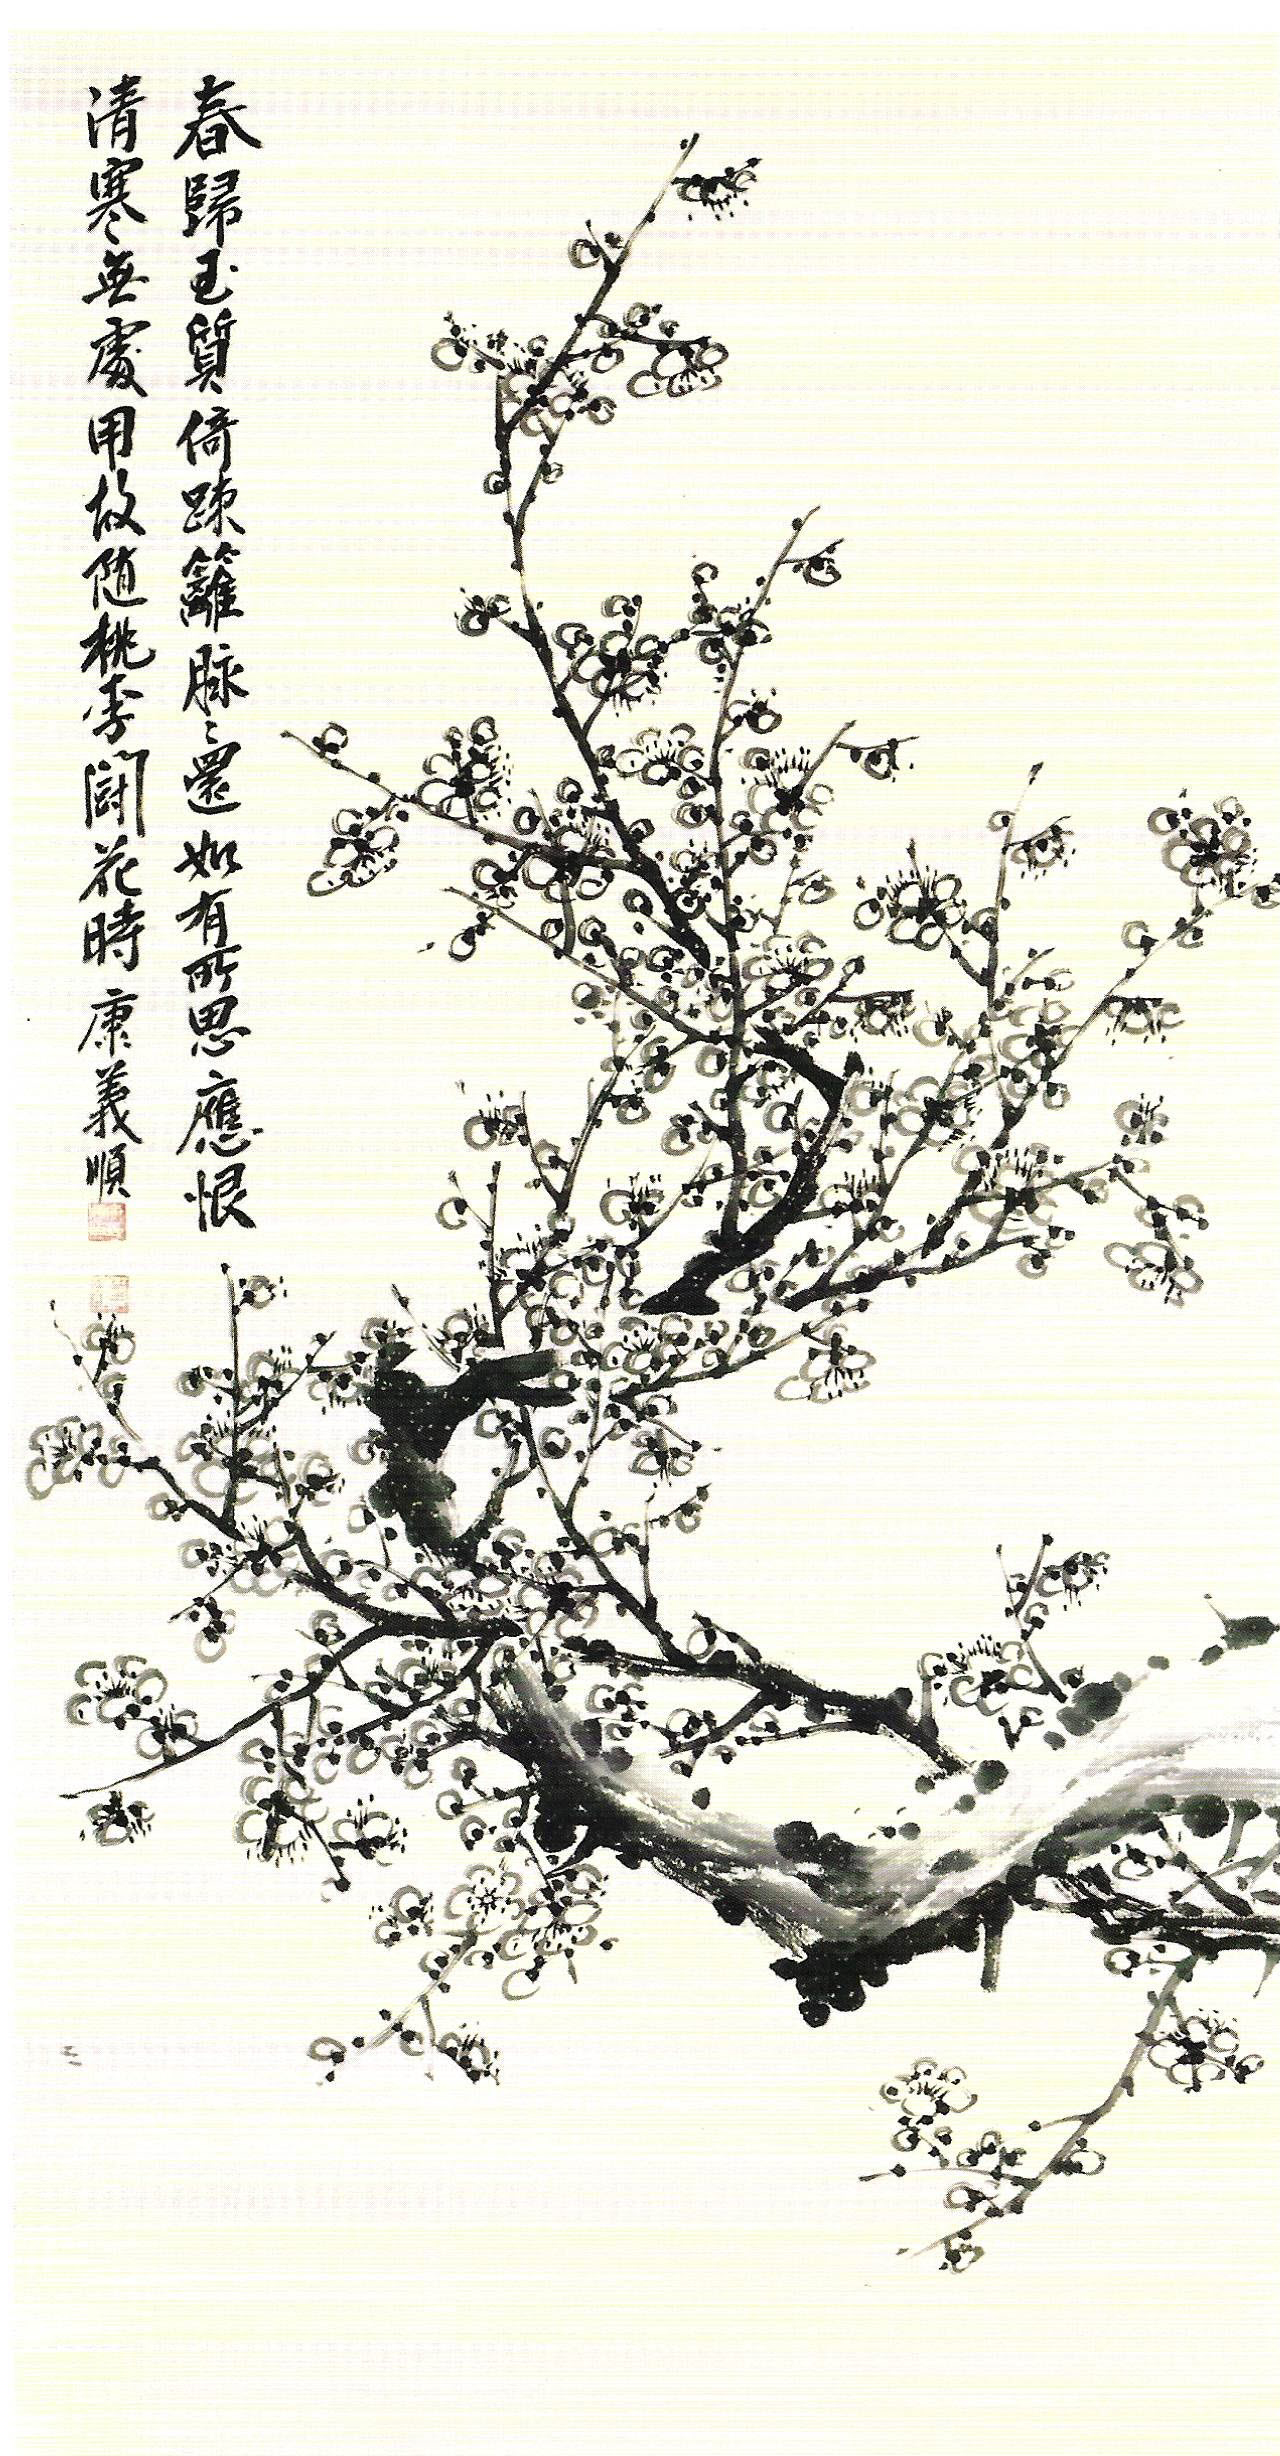 春歸玉質倚踈籬脉〻還如有所思應恨
清寒無處用故随桃李鬪花時 康義順